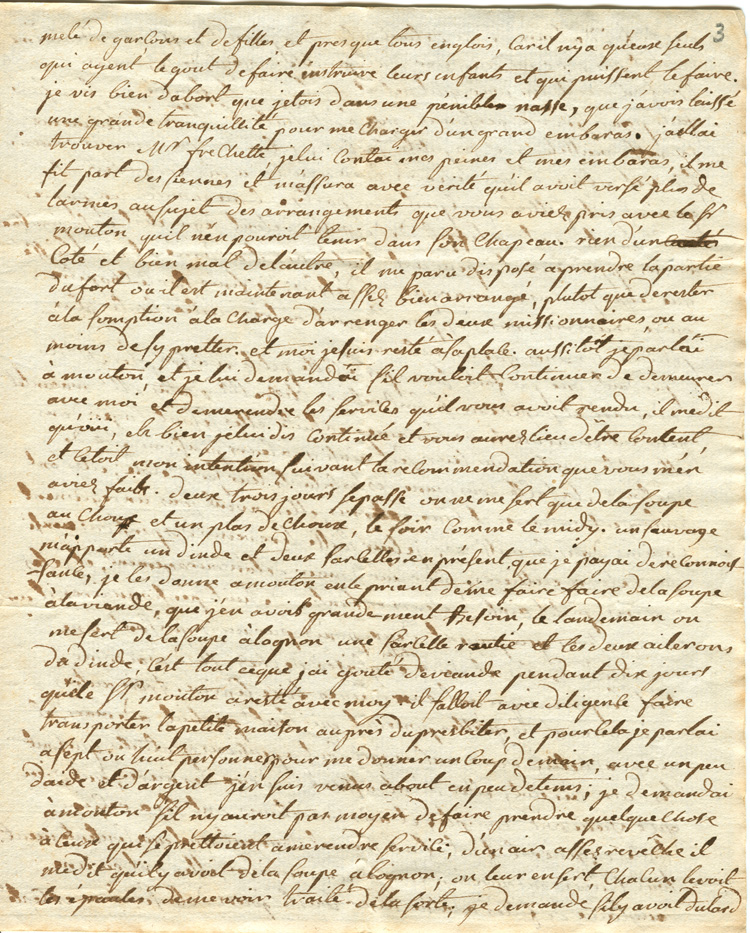 3
melé de garcons et de filles et presque tous englois, car il nya qu'euse seuls
qui ayent le gout de faire instruire leurs enfants et qui puissent le faire.
je vis bien dabort que jetois dans une penible nasse, que j'avois laissé
une grande tranquillité pour me charger d'un grand embaras. j'allai
trouver Mr frechette, je lui contai mes peines et mes embaras, il me
fit part des siennes et m'assura avec verité qu'il avoit versé plus de
larmes au sujet des arrangements que vous aviez pris avec le Sr
mouton qu'il n'en pouroit tenir dans son chapeau. rien d'un
coté et bien mal de l'autre, il me paru disposé a prendre la partie
du fort ou il est maintenant assez bien arrangé, plutot que de rester
à la somption à la charge d'arrenger les deux missionnaires ou au
moins de sy pretter. et moi je suis resté a sa place. aussitot je parlai
à mouton, et je lui demandai s'il vouloit continuer de demeurer
avec moi et de me rendre les services qu'il vous avoit rendu, il me dit
qu'oui, eh bien je lui dis continué et vous aurez lieu d'être content,
et c'etoit mon intention suivant la recommendation que vous m'en
aviez faite. deux trois jours se passe on ne me sert que de la soupe
au choux et un plas de choux, le soir comme le midy. un sauvage
m'apporte un dinde et deux sarcelles en présent, que je payai de reconnois-
-sance, je les donne a mouton en le priant de me faire faire de la soupe
à la viande, que j'en avois grandement besoin, le landemain on
me sert de la soupe à lognon une sarcelle routie et les deux ailerons
da dinde, c'est tout ceque j'ai gouté de veande pendant dix jours
quele Sr mouton a resté avec moy il falloit avec diligence faire
transporter la petite maison au pres du presbiter, et pour cela je parlai
a sept ou huit personnes pour me donner un coup de main, avec un peu
daide et d'argent j'en suis venus about en peu de tems; je demandai
à mouton s'il ny auroit pas moyen de faire prendre quelque chose
à ceux qui se prettoient a me rendre service, d'un air assez revêche il
me dit qu'il y avoit de la soupe a lognon; on leur en sert, chacun levoit
les épaules de me voir traité de la sorte; je demande s'il y avoit du lard